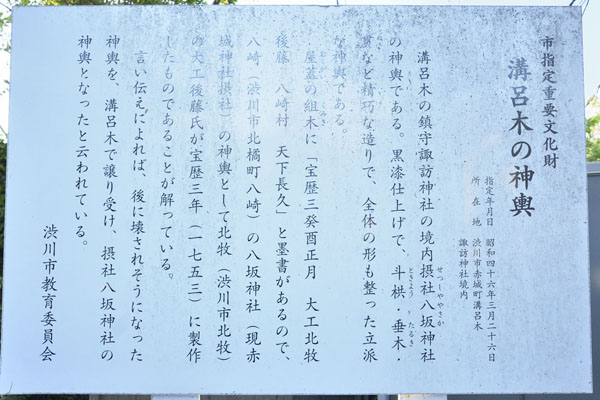 市指定重要文化財
溝呂木の神輿
指定年月日 昭和四十六年三月二十六日
所在地 渋川市赤城町溝呂木
諏訪神社境内
溝呂木の鎮守諏訪神社の境内摂社八坂神社
せつしややさか
の神輿である。黒漆仕上げで、斗栱・垂木・
ときょう たるき
貫など精巧な造りで、全体の形も整った立派
な神輿である。
屋蓋の組木に「宝歴三癸酉正月 大工北牧
後藤 八崎村 天下長久」と墨書があるので、
八崎(渋川市北橘町八崎)の八坂神社(現赤
城神社摂社)の神輿として北牧(渋川市北牧)
の大工後藤氏が宝歴三年(一七五三)に製作
したものであることが解っている。
言い伝えによれば、後に壊されそうになった
神輿を、溝呂木で譲り受け、摂社八坂神社の
神輿となったと云われている。
渋川市教育委員会